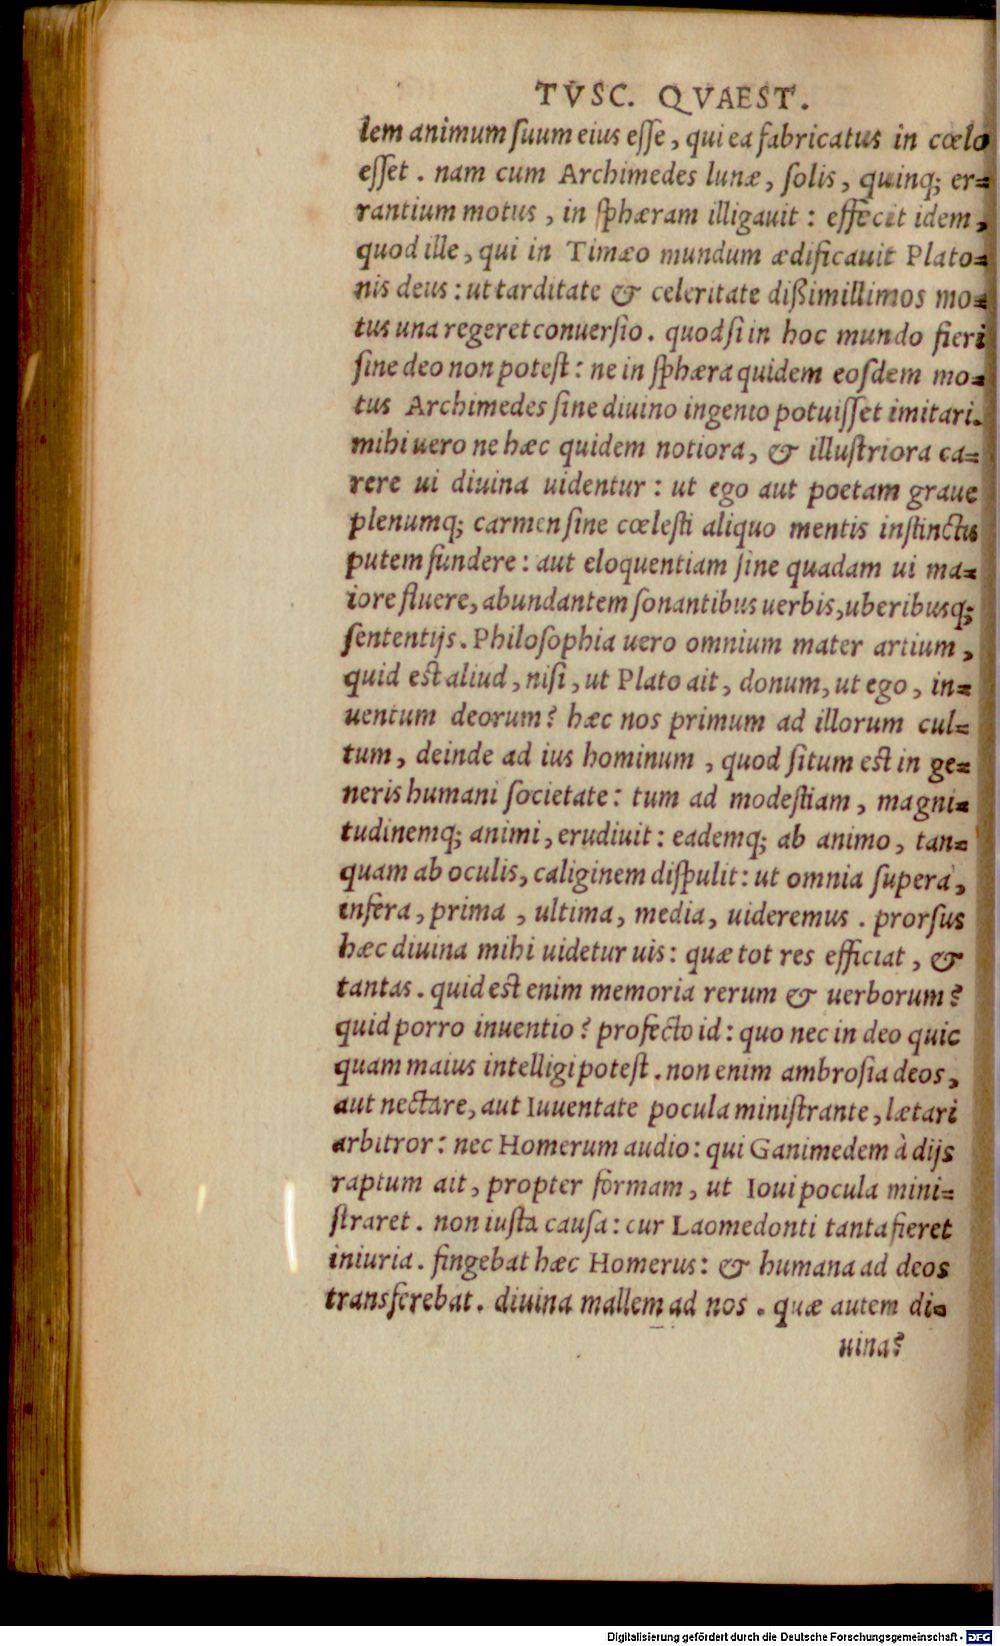 TVSC. QVAEST.
lem animum ſuum eius eſſe, qui ea fabricatus in cœlo
eſſet. nam cum Archimedes lunæ, ſolis, quinq; er=
rantium motus, in ſphæram illigauit: effecit idem,
quod ille, qui in Timæo mundum ædificauit Plato=
nis deus: ut tarditate & celeritate dißimillimos mo=
tus una regeret conuerſio. quod ſi in hoc mundo fieri
ſine deo non poteſt: ne in ſphæra quidem eoſdem mo=
tus Archimedes ſine diuino ingenio potuiſſet imitari.
mihi uero ne hæc quidem notiora, & illuſtriora ca=
rere ui diuina uidentur: ut ego aut poetam graue
plenumq; carmen ſine cœleſti aliquo mentis inſtinctu
putem fundere: aut eloquentiam ſine quadam ui ma=
iore fluere, abundantem ſonantibus uerbis, uberibusq;
ſententijs. Philoſophia uero omnium mater artium,
quid est aliud, niſi, ut Plato ait, donum, ut ego, in=
uentum deorum? hæc nos primum ad illorum cul=
tum, deinde ad ius hominum, quod ſitum est in ge=
neris humani ſocietate: tum ad modeſtiam, magni=
tudinemq; animi, erudiuit: eademq; ab animo, tan=
quam ab oculis, caliginem diſpulit: ut omnia ſupera,
infera, prima, ultima, media, uideremus. prorſus
hæc diuina mihi uidetur uis: quæ tot res efficiat, &
tantas. quid est enim memoria rerum & uerborum?
quid porro inuentio? profecto id: quo nec in deo quic
quam maius intelligi poteſt. non enim ambroſia deos,
aut nectare, aut Iuuentate pocula miniſtrante, lætari
arbitror: nec Homerum audio: qui Ganimedem à dijs
raptum ait, propter formam, ut Ioui pocula mini=
ſtraret. non iuſta cauſa: cur Laomedonti tanta fieret
iniuria. fingebat hæc Homerus: & humana ad deos
transferebat. diuina mallem ad nos. quæ autem di=
uina?
Digitalisierung gefördert durch die Deutsche Forschungsgemeinschaft - DFG